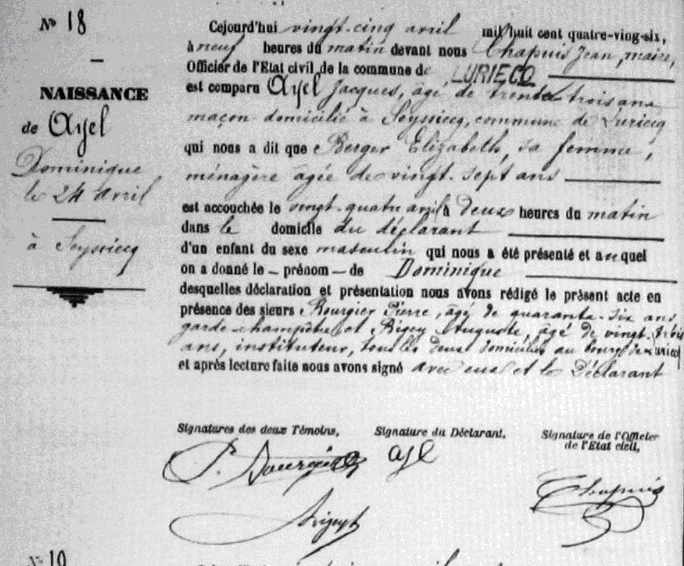 N° 18
NAISSANCE
de Ayel
Dominique
le 24 avril
à Seyssiecq
Cejourd'hui vingt-cinq avril mil huit cent quatre-ving-six,
à neuf heures du matin devant nous Chapuis Jean, maire,
Officier de l'Etat civil de la commune de LURIECQ
est comparu Ayel Jacques, âgé de trente trois ans
maçon domicilié à Seyssiecq, commune de Luriecq
qui nous a dit que Berger Elizabeth, sa femme,
ménagère agée de vingt-sept ans
est accouchée le vingt-quatre avril à deux heures du matin
dans le domicile du déclarant
d'un enfant du sexe masculin qui nous a été présenté et auquel
on a donné le prénom de Dominique
desquelles déclaration et présentation nous avons rédigé le présent acte en
présence des sieurs Bourgier Pierre, âgé de quarante-six ans
garde-champêtre et Rigey Auguste, âgé de vingt-trois
ans, instituteur, tous les deux domiciliés au bourg de Luriecq
et après lecture faite nous avons signé avec eux et le Déclarant
Signatures des deux Témoins, Signature du Déclarant, Signature de l'Officier
de l'Etat civil,
P. Bourgier ayel Chapuis
Rigey
N° 19